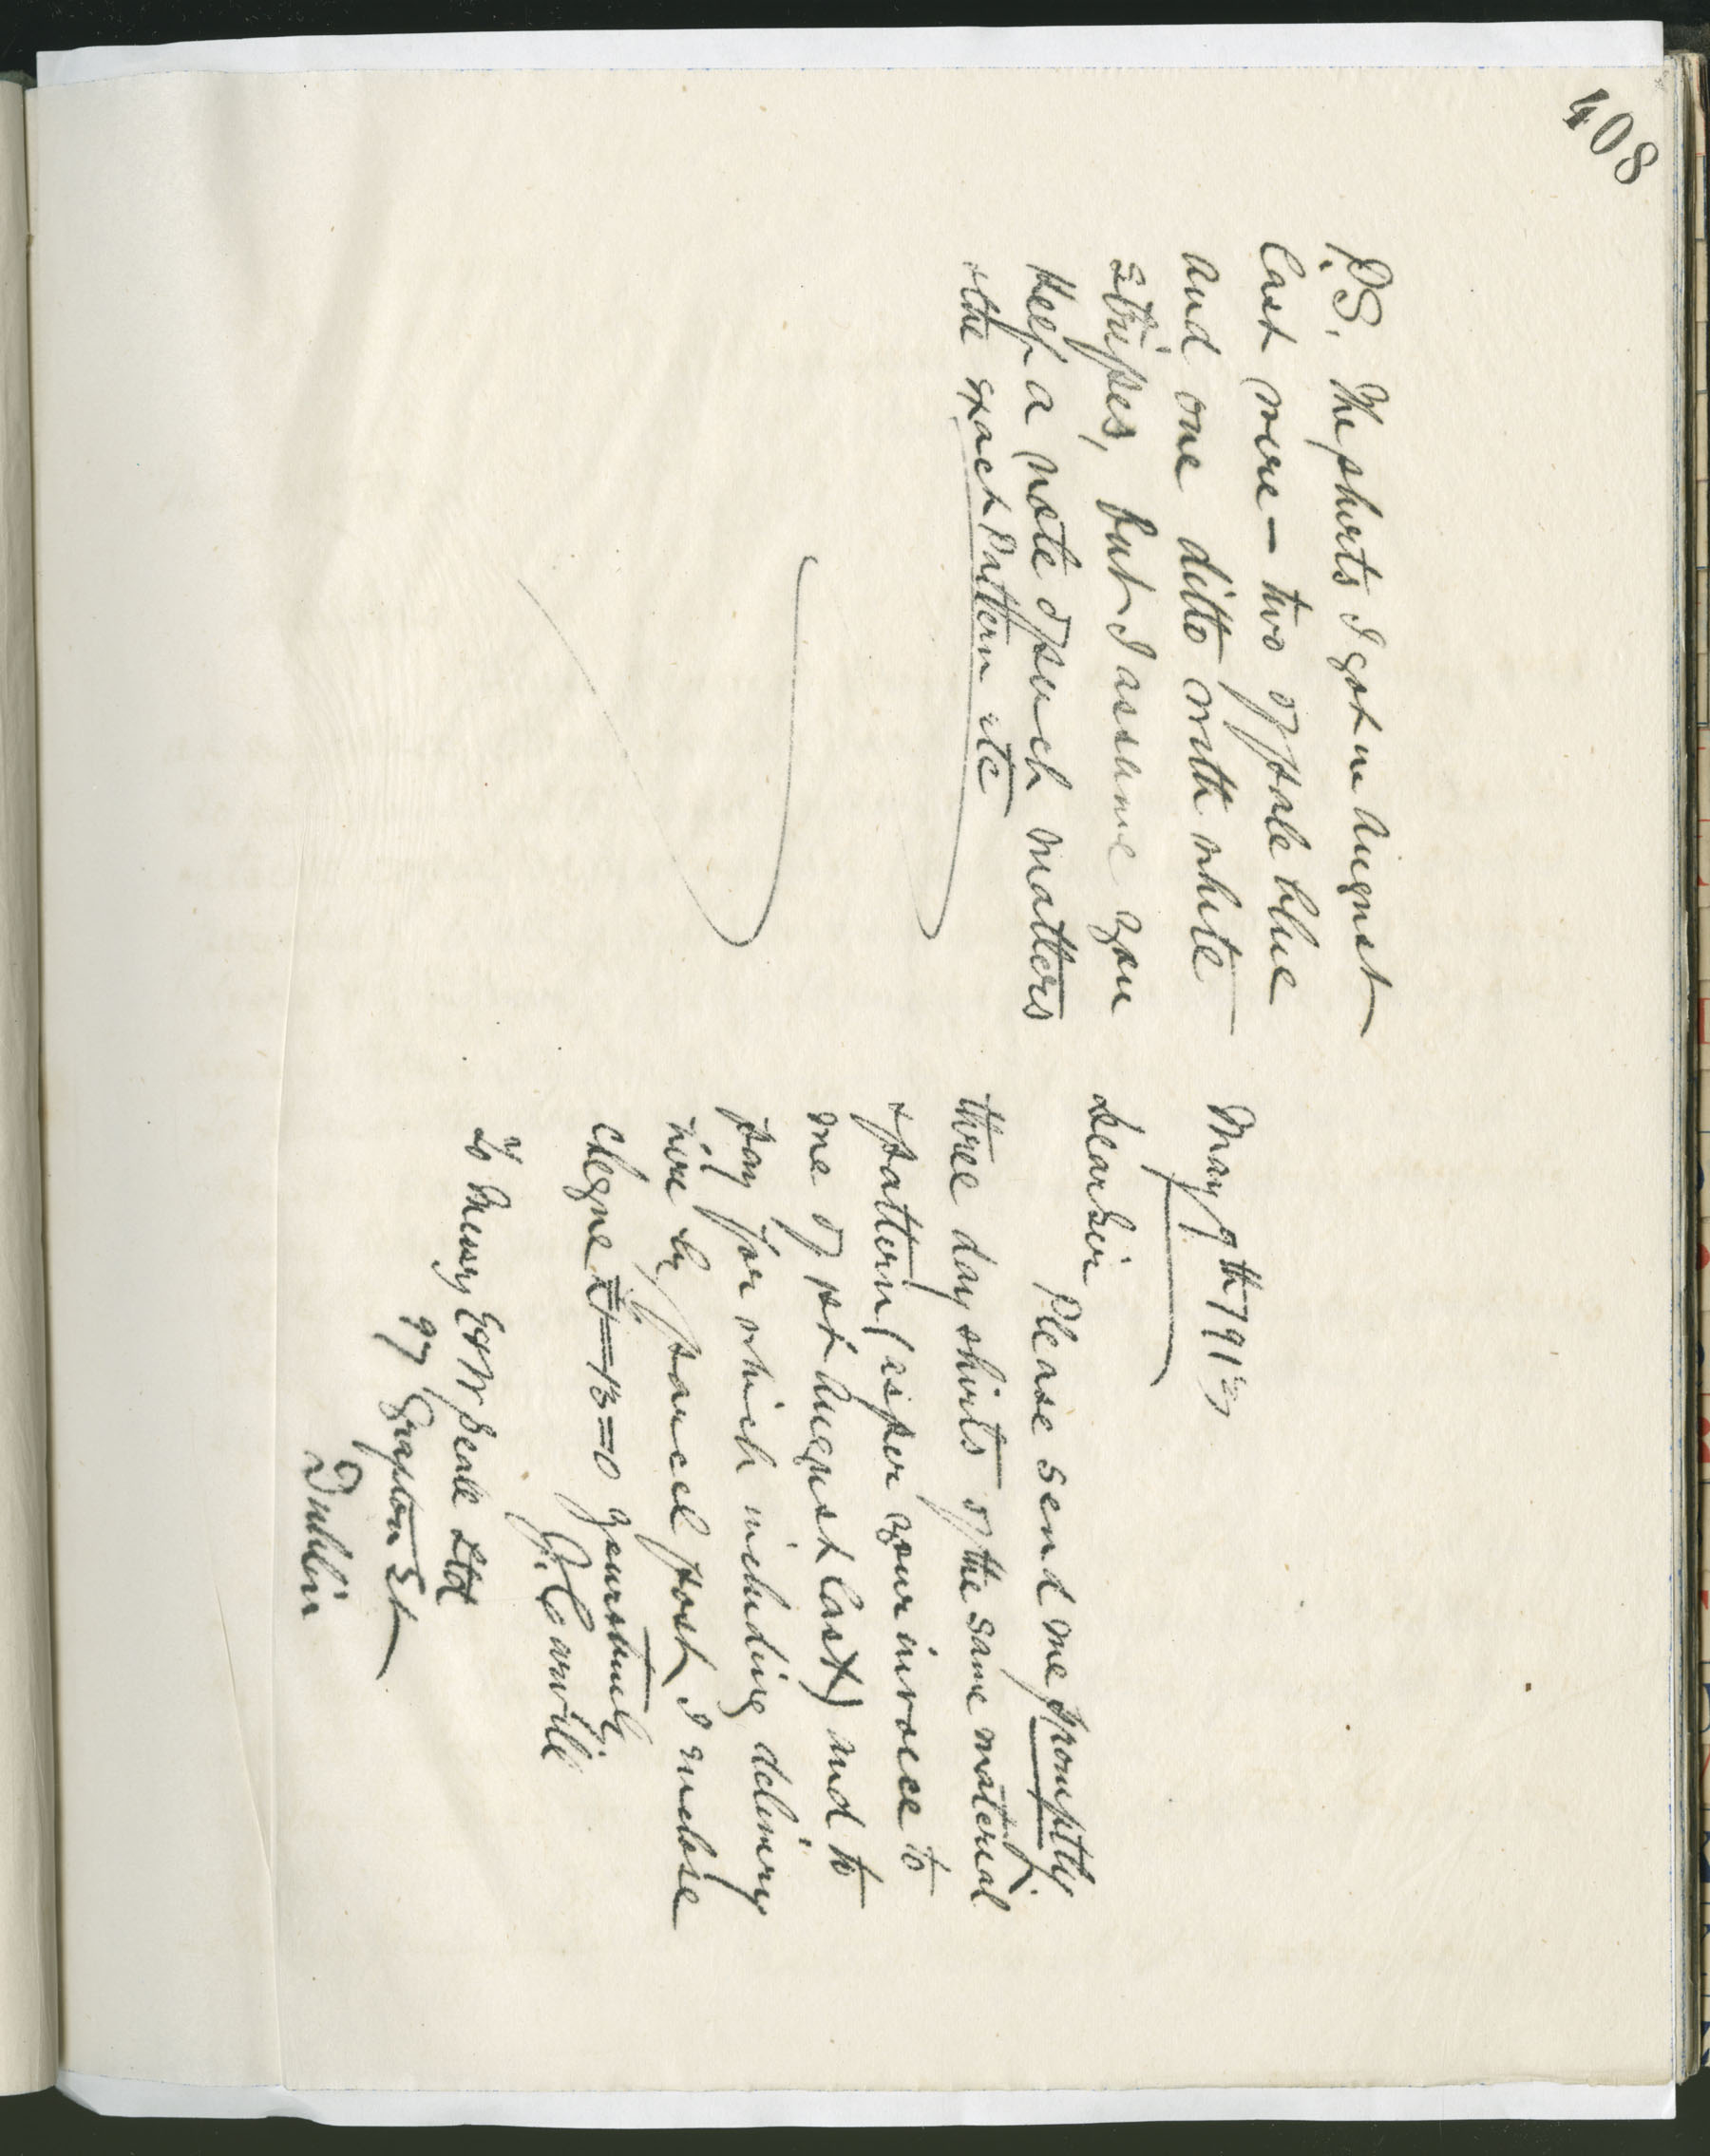 408
May 9th 1913
Dear Sir
Please send me promptly
three day shirts of the same material
& pattern (as per your invoice to
me of 1st August last) and to
pay for which including delivery
here by parcel post I enclose
cheque £1=13=0 yours truly
J. Carvill
To Messrs E & W Seale Ltd
97 Grafton St
Dublin
P.S. The shirts I got in August
last were — two of pale blue
and one ditto with white
stripes, but I assume you
keep a note of such matters
& the exact pattern etc